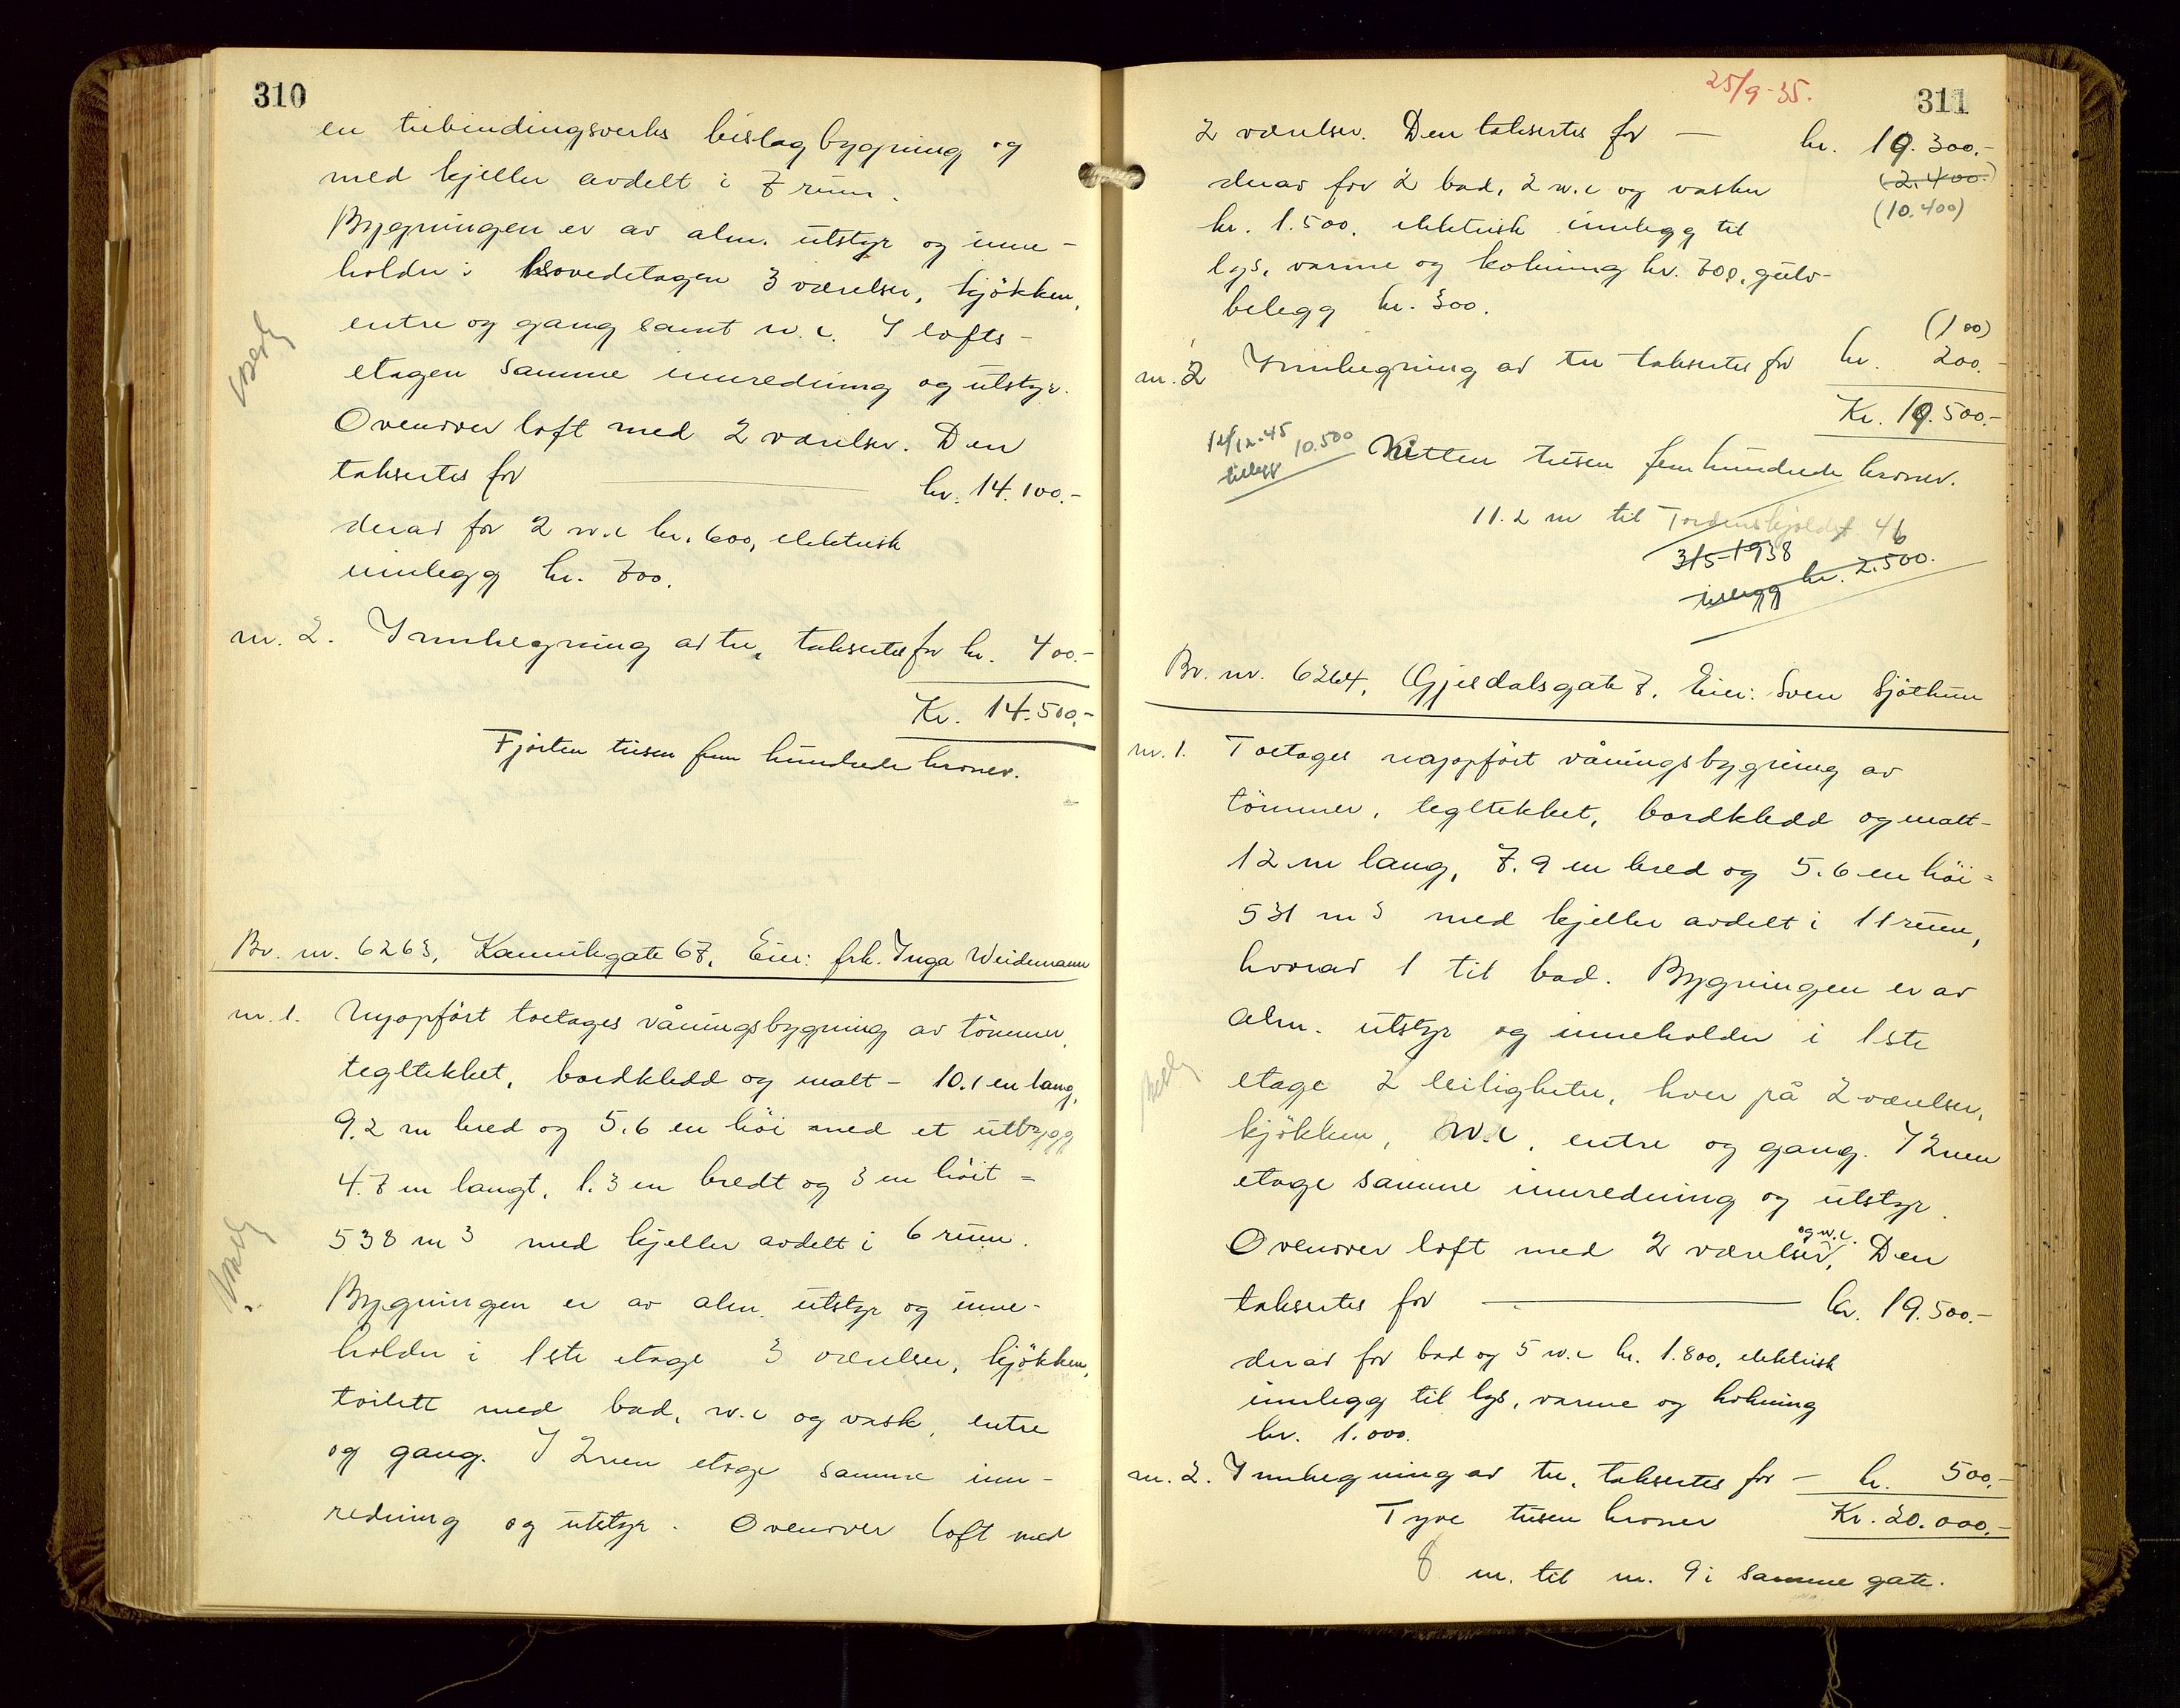 310
en utbindingsverks bislagbygning og
med kjeller avdelt i 7 rum.
Bygningen er av alm. utstyr og inne-
holder i hovedetagen 3 værelser, kjökken,
entre og gang samt w.c. I lofts-
etagen samme innredning og utstyr.
Ovenover loft med 2 værelser. Den
taksertes for kr. 14.100.-
derav for 2 w.c kr. 600, elektrisk
innlegg kr. 700.
nr. 2. Innhegning av tre, taksertes for kr. 400.-
Kr. 14.500.-
Fjorten tusen fem hundrede kroner.
Br. nr. 6263, Kannikgate 67, Eier: frk. Inga Weidemann
nr. 1. Nyopført toetages våningsbygning av tömmer,
tegltekket, bordkledd og malt - 10.1 m lang,
9.2 m bred og 5.6 m höi med et utbygg
4.7 m langt, 1.3 m bredt og 3 m höit =
538 m3 med kjeller avdelt i 6 rum.
Bygningen er av alm. utstyr og inne-
holder i 1ste etage 3 værelser, kjökken,
toilett med bad, w.c og vask, entre
og gang. I 2nen etage samme inn-
redning og utstyr. Ovenover loft med
25/9-35.
311
2 værelser. Den taksertes for — kr. 19.300.-
(2.400.)
derav for 2 bad, 2 w.c og vasker
(10.400)
kr. 1.500, elektrisk innlegg til
lys, varme og kokning kr. 700, gulv-
belegg kr. 300.
(100)
nr. 2 Innhegning av tre taksertes for kr. 200.-
Kr. 19.500.-
12/12-45 10.500
tillegg
Nitten tusen fem hundrede kroner.
11.2 m til Tordenskjoldsgt. 46
3/5-1938
tillegg kr. 2.500.
Br. nr. 6264, Gjesdalsgate 7, Eier: Sven Sjöthun
nr. 1. Toetages nyopfört våningsbygning av
tömmer, tegltekket, bordkledd og malt -
12 m lang, 7.9 m bred og 5.6 m höi =
531 m3 med kjeller avdelt i 11 rum,
hvorav 1 til bad. Bygningen er av
alm. utstyr og inneholder i 1ste
etage 2 leiligheter, hver på 2 værelser,
kjökken, w.c, entre og gang. I 2nen
etage samme innredning og utstyr.
Ovenover loft med 2 værelser og w.c. Den
taksertes for — kr. 19.500.-
derav for bad og 5 w.c kr. 1.800, elektrisk
innlegg til lys, varme og kokning
kr. 1.000.
nr. 2. Innhegning av tre, taksertes for — kr. 500.-
Tyve tusen kroner Kr. 20.000.-
8 m. til nr. 9 i samme gate.